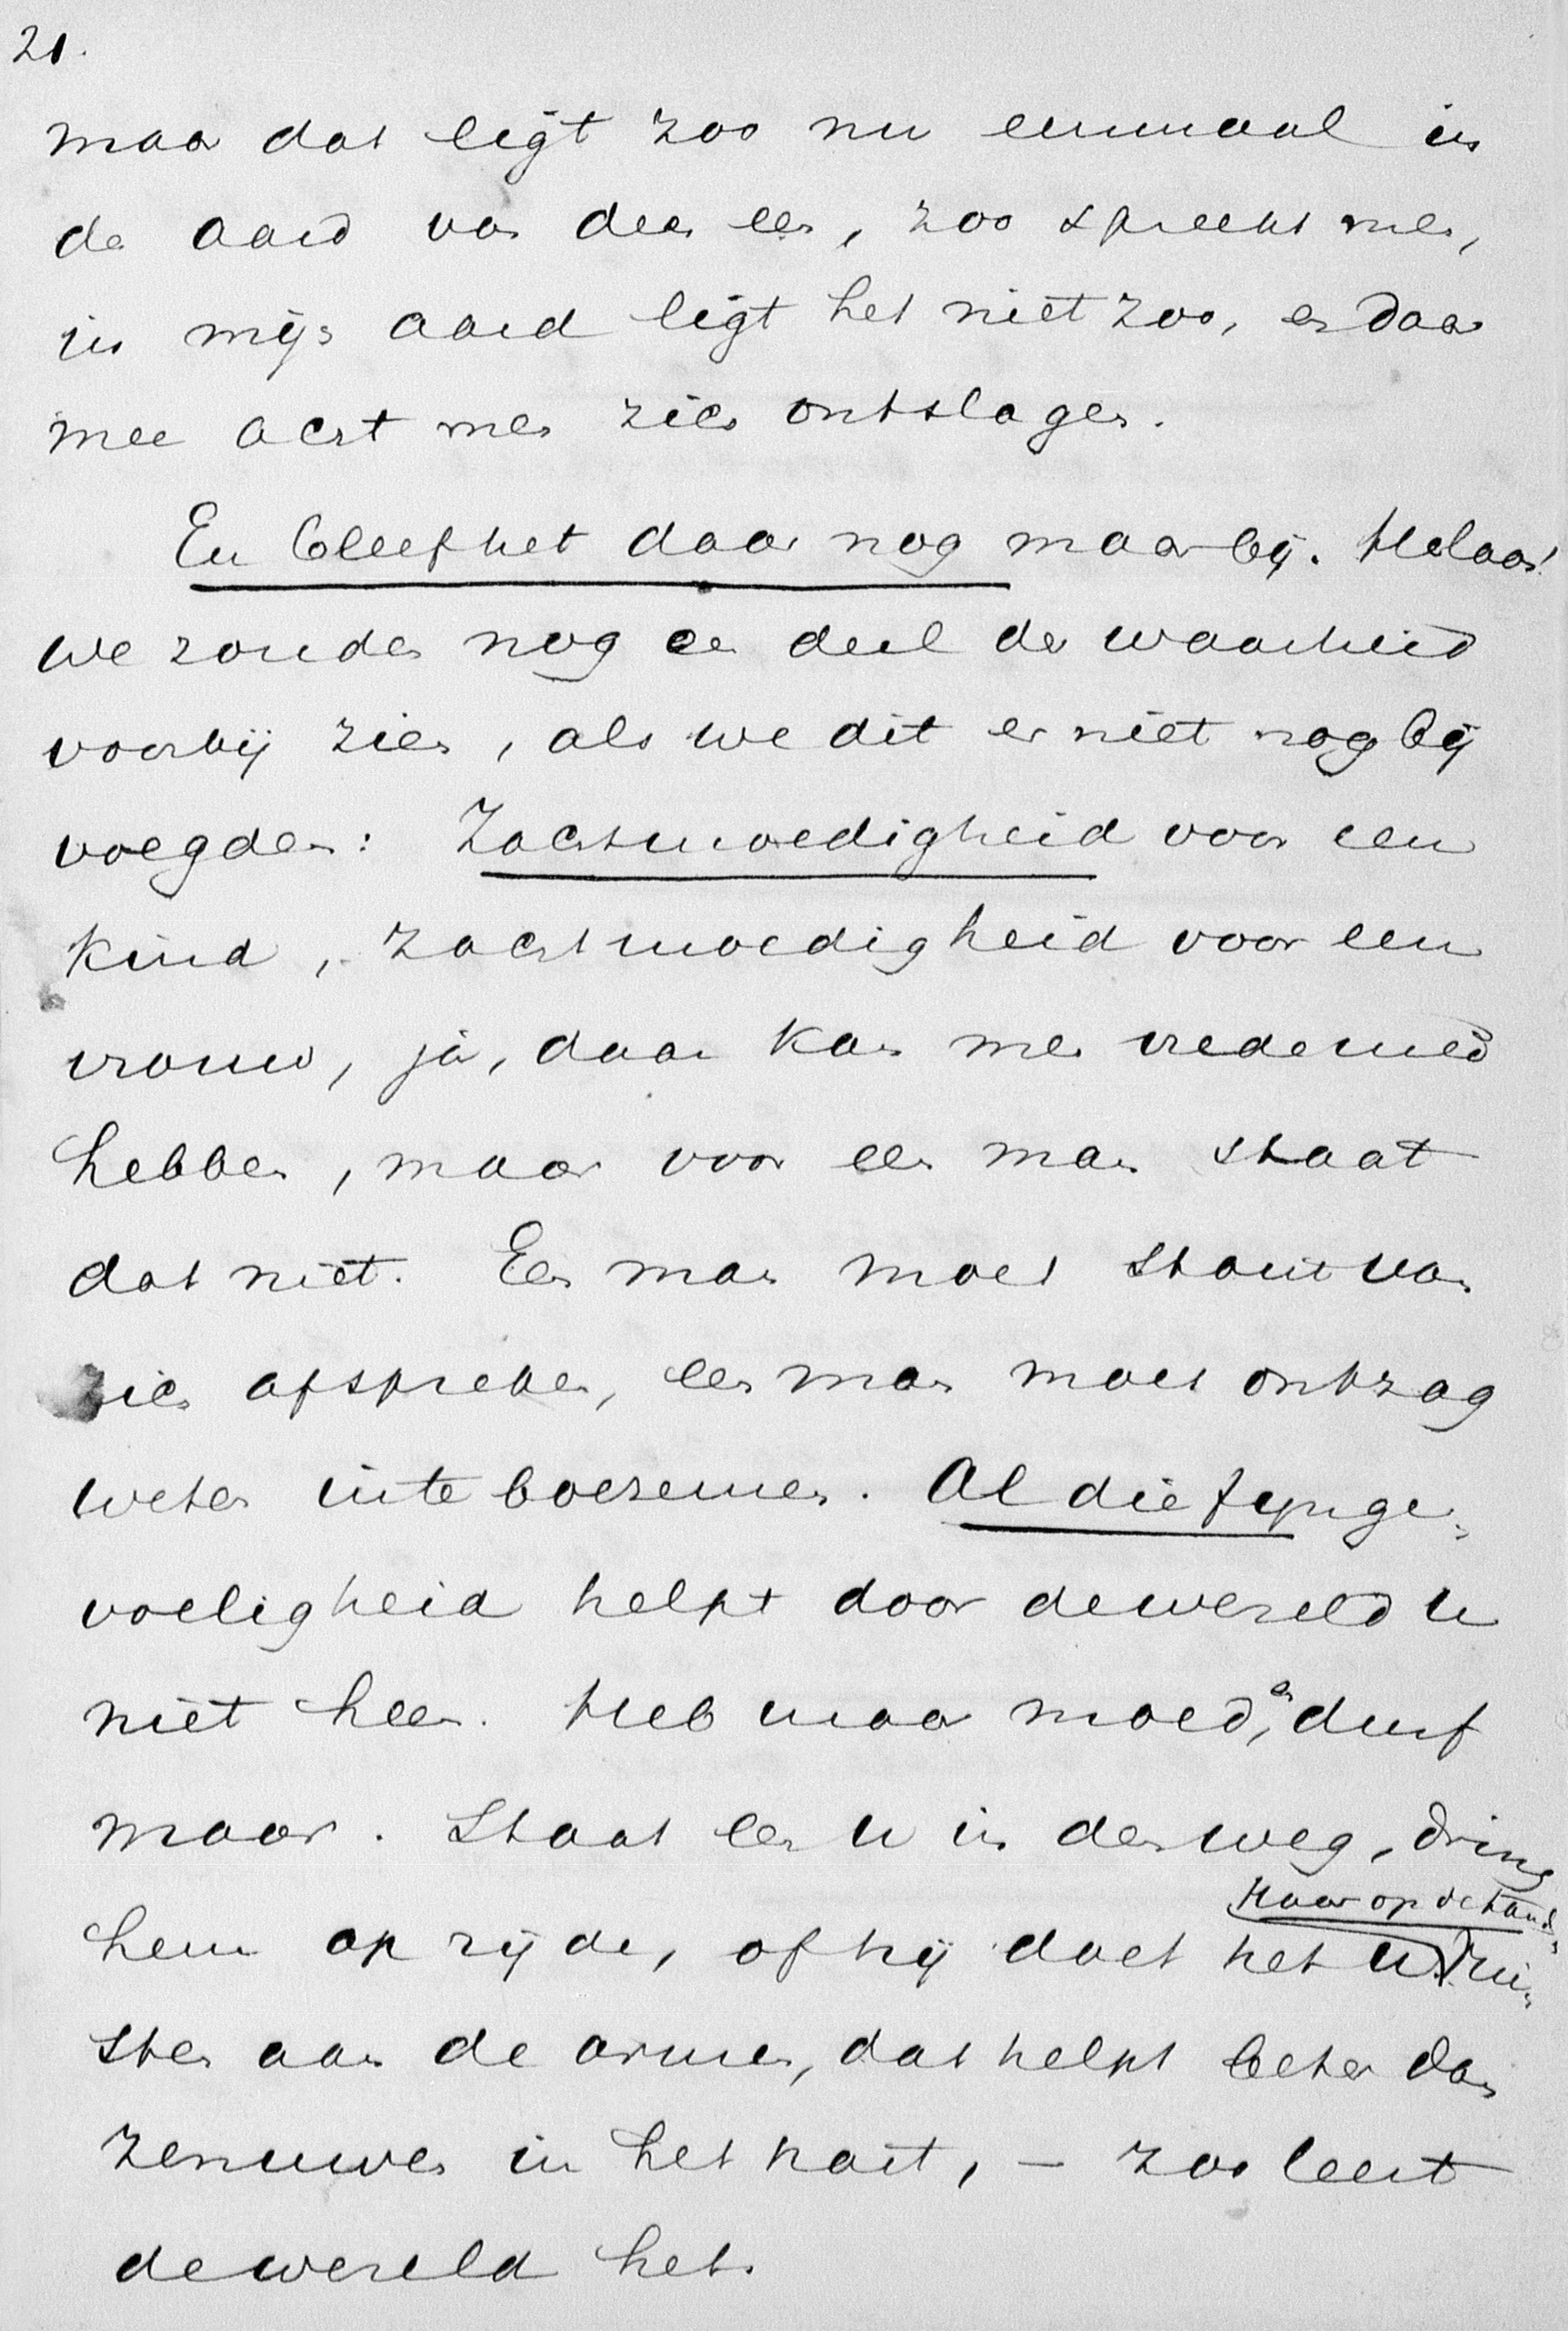 21.
maar dat ligt zoo nu eenmaal in
de aard van den een, zoo spreekt men,
in mijn aard ligt het niet zoo, en daar
mee acht men zich ontslagen.
En bleef het daar nog maar bij. Helaas!
we zouden nog een deel der waarheid
voorbij zien, als we dit er niet nog bij
voegden: Zachtmoedigheid voor een
kind, zachtmoedigheid voor een
vrouw, ja, daar kan men vrede meê
hebben, maar voor een man staat
dat niet. Een man moet stout van
zich afspreken, een man moet ontzag
weten inteboezemen. Al die fijnge-
voeligheid helpt door de wereld u
niet heen. Heb maar moed, en durf
maar. Staat een u in den weg, dring
hem op zijde, of hij doet het u.
Haar op de tand,
Kui-
sten aan de armen, dat helpt beter dan
zenuwen in het hart, – zoo leert
de wereld het.